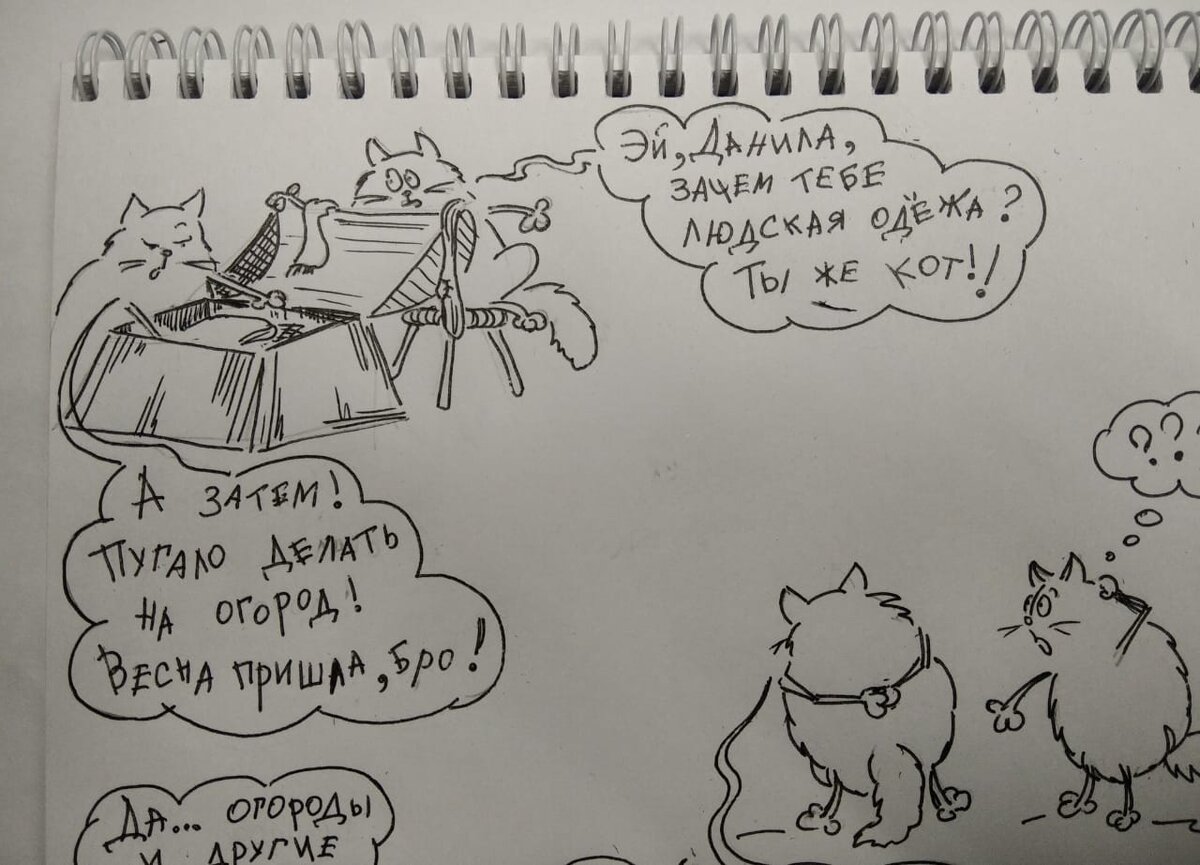 Эй, Данила,
зачем тебе
людская одёжа?
Ты же кот!!
А затем!
Пугало делать
на огород!
Весна пришла, бро!
???
Да... огороды
и другие